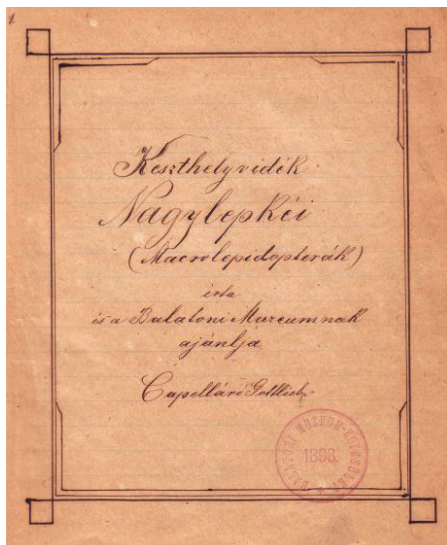 1.
Keszthelyvidék
Nagylepkéi
(Macrolepidopterák)
írta
és a Balatoni Muzeumnak
ajánlja
Capelláró Gottlieb
BALATONI MUZEUM-EGYESÜLET
1898.